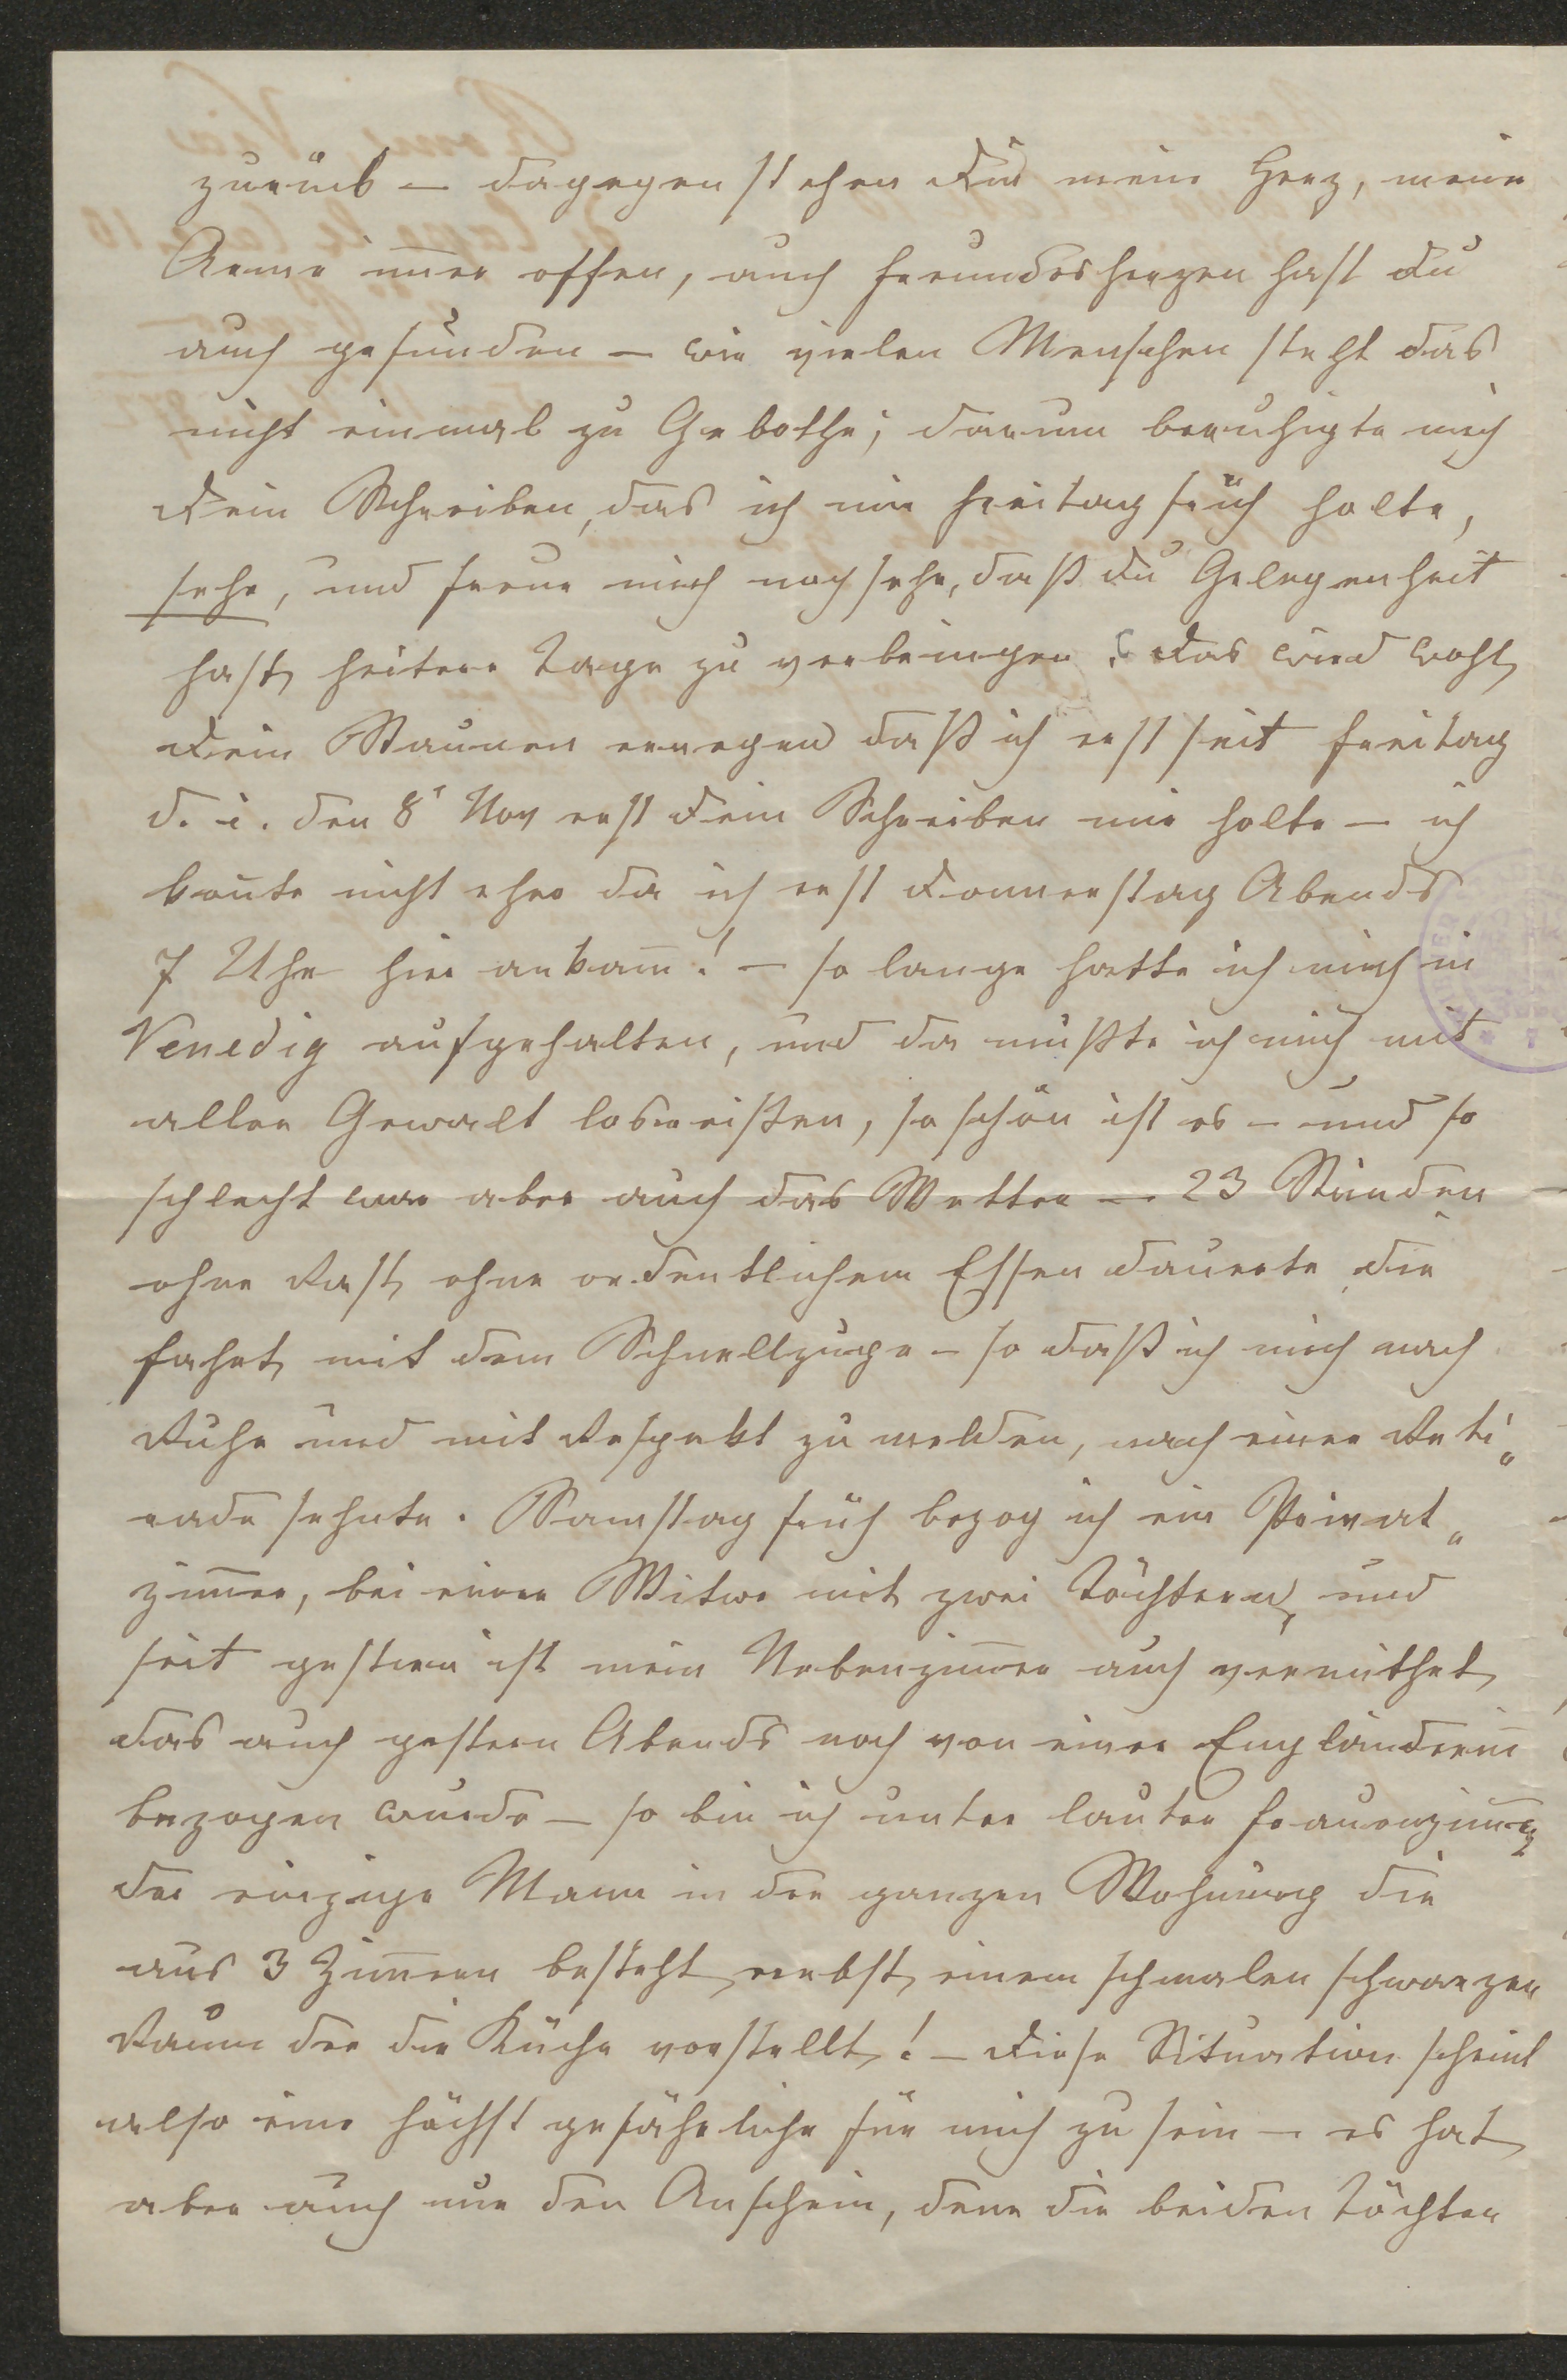 zurück – dagegen stehen Dir mein Herz, meine
Arme im̅er offen, auch Freundesherzen hast Du
auch gefunden – wie vielen Menschen steht das
nicht einmal zu Gebothe; darum beruhigte mich
Dein Schreiben, das ich mir Freitag früh holte,
sehr, und freue mich noch sehr, daß Du Gelegenheit
hast heitere Tage zu verbringen. Das wird wohl
Dein Staunen erregen daß ich erst seit Freitag
d. i. den 8t Nov erst Dein Schreiben mir holte – ich
kon̅te nicht eher da ich erst Donnerstag Abends
7 Uhr hier ankam̅! – so lange hatte ich mich in
Venedig aufgehalten, und da mußte ich mich mit
aller Gewalt losreißen, so schön ist es – und so
schlecht war aber auch das Wetter – 23 Stunden
ohne Rast, ohne ordentlichem Essen dauerte die
Fahrt mit dem Schnellzuge – so daß ich mich nach
Ruhe und mit Respekt zu melden, nach einer Reti„
rade sehnte. Samstag früh bezog ich ein Privat„
zim̅er, bei einer Witwe mit zwei Töchtern, und
seit gestern ist mein Nebenzim̅er auch vermithet
das auch gestern Abends noch von einer Engländerin̅
bezogen wurde – so bin ich unter lauter Frauenzim̅er
der einzige Mann in der ganzen Wohnung die
aus 3 Zim̅ern besteht nebst einem schmalen schwarzen
Raum der die Küche vorstellt! – Diese Situation scheint
also eine höchst gefährliche für mich zu sein – es hat
aber auch nur den Anschein, denn die beiden Töchter